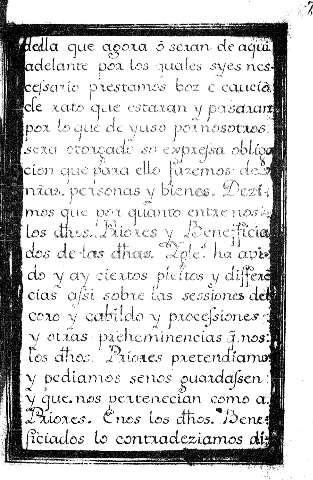 della que agora ò seran de aqui
adelante por los quales syes nes-
cessario prestamos boz e cauciō
de rato que estaran y pasaran
por lo que de yuso por nosotros
sera otorgado so expressa obliga
cion que para ello fazemos de
nr̃as. personas y bienes. Dezi-
mos que por quanto entre nos
los dħos. Priores y Beneficia
dos de las dħas. Ygle.ˢ ha avi-
do y ay ciertos pleitos y differē
cias assi sobre las sessiones del
coro y cabildo y processiones
y otras preheminencias q̃. nos
los dħos. Priores pretendiamos
y pediamos senos guardassen
y que. nos pertenecian como a
Priores. Enos los dħos. Bene-
ficiados lo contradeziamos di-